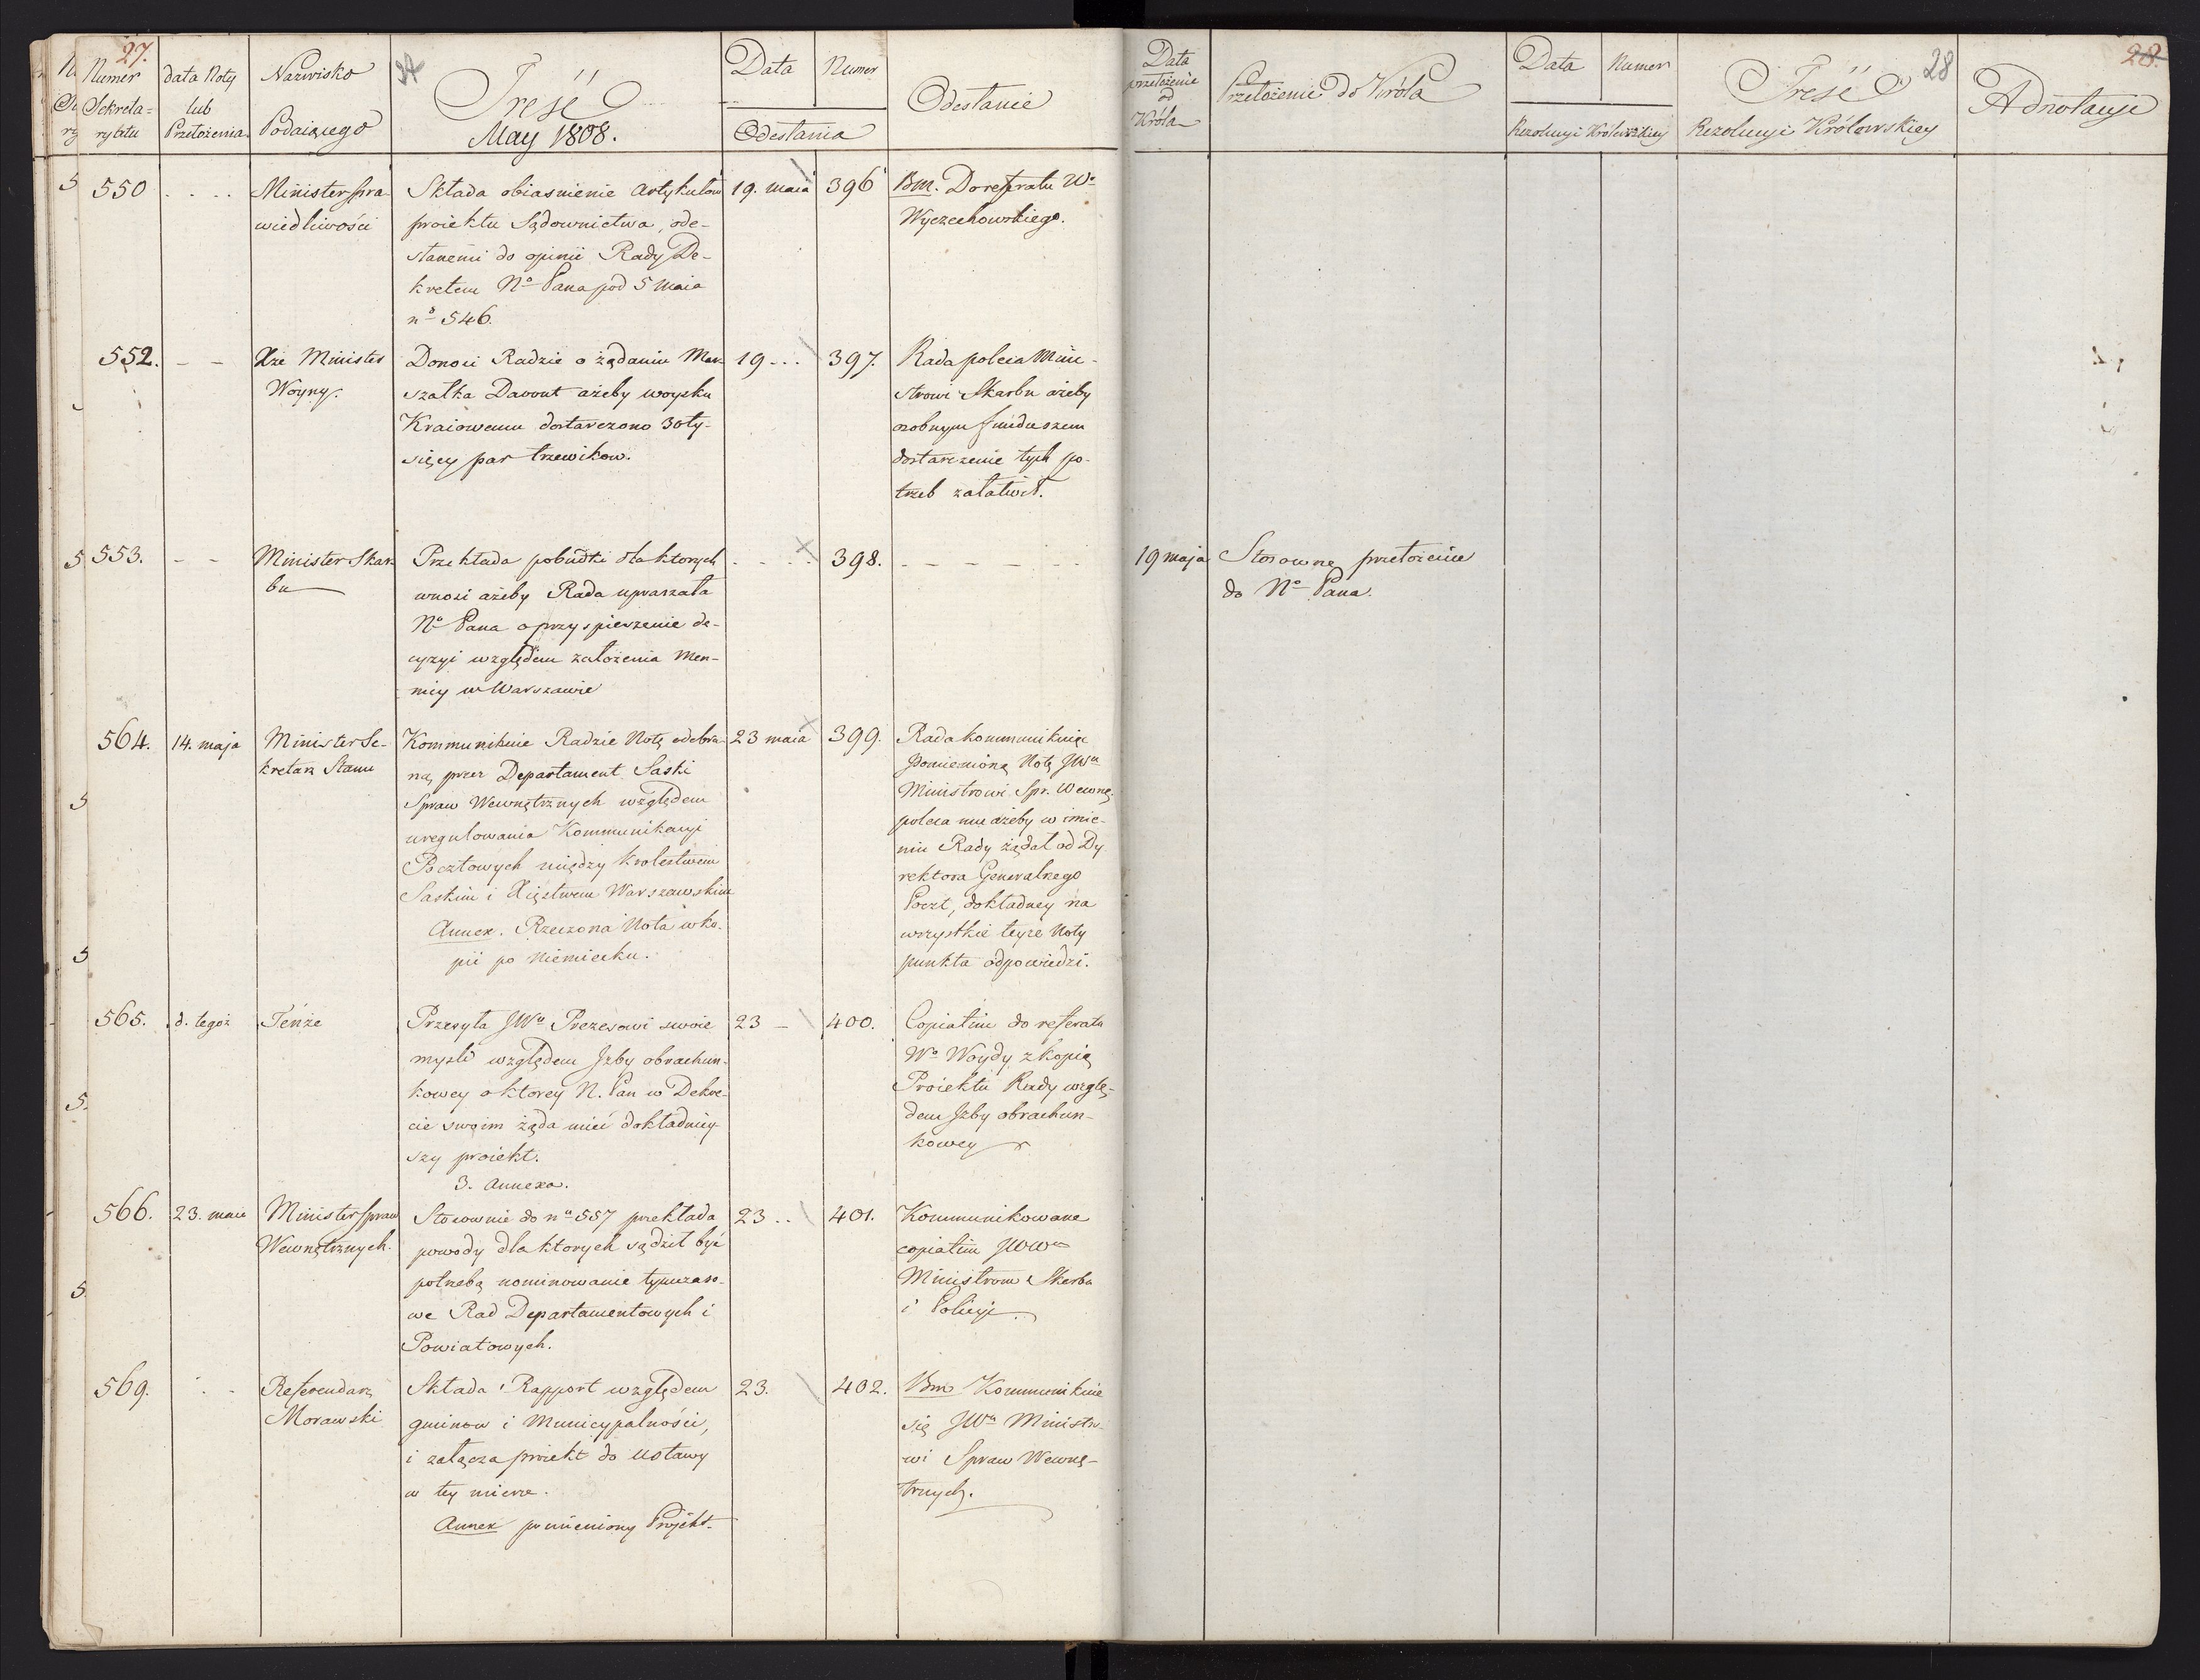 27.
Numer
Sekreta-
ryatu
data Noty
lub
Przełożenia
Nazwisko
Podaiącego
Treść
May 1808.
Data
Numer
Odesłania
Odesłanie
Data
przełożenia
od
Króla
Przełożenie do Króla
Data
Numer
Rezolucyi Królewskiey
28
Treść
Rezolucyi Królewskiey
28.
Adnotacye
550
Minister Spra-
wiedliwości
Składa obiasnienie Artykułow
proiektu Sądownictwa, ode-
słanemi do opinii Rady De-
kretem No Pana pod 5 Maia
no 546.
19. maia
396
Bm. Do referatu Wo
Wyczechowskiego.
552.
Xże Minister
Woyny.
Donosi Radzie o żądaniu Mar-
szałka Davout ażeby woysku
Kraiowemu dostarczono 30ty-
sięcy par trzewikow.
19 - . .
397.
Rada poleca Mini-
strowi Skarbu ażeby
osobnym funduszem
dostarczenie tych po-
trzeb załatwił.
553.
Minister Skar-
bu
Przekłada pobudki dla ktorych
wnosi ażeby Rada upraszała
No Pana o przyspieszenie de-
cyzyi względem założenia Men-
nicy w Warszawie
398.
19 maja
Stosowne przełożenie
do No Pana.
564.
14. maja
Minister Se-
kretarz Stanu
Kommunikuie Radzie Notę odebra-
ną przez Departament Saski
Spraw Wewnętrznych względem
uregulowania Kommunikacyi
Pocztowych między Krolestwem
Saskim i Xięstwem Warszawskim
Annex. Rzeczona Nota w ko-
pii po Niemiecku.
23 maia
399.
Rada kommunikuiąc
pomienioną Notę JWu
Ministrowi Spr. Wewnę.
poleca mu ażeby w imie-
niu Rady żądał od Dy-
rektora Generalnego
Poczt, dokładney na
wszystkie teyże Noty
punkta odpowiedzi.
565.
d. tegoż
Tenże
Przesyła JWu Prezesowi swoie
mysli względem Izby obrachun-
kowey o ktorey N. Pan w Dekre-
cie swoim żąda mieć dokładniey-
szy proiekt.
3. Annexa.
23 -
400.
Copiatim do referatu
Wo Woydy z kopią
Proiektu Rady wzglę-
dem Izby obrachun-
kowey
566.
23. maia
Minister Spraw
Wewnętrznych.
Stosownie do no 557 przekłada
powody dla ktorych sądził być
potrzebą nominowanie tymczaso-
we Rad Departamentowych i
Powiatowych.
23 . .
401.
Kommunikowane
copiatim JWWm
Ministrom Skarbu
i Policyi
569.
Referendarz
Morawski
Składa Rapport względem
gminow i Municypalności,
i załącza proiekt do Ustawy
w tey mierze.
Annex pomieniony Projekt.
23.
402.
Bm Kommunikuie
się JWu Ministro-
wi Spraw Wewnę-
trznych.